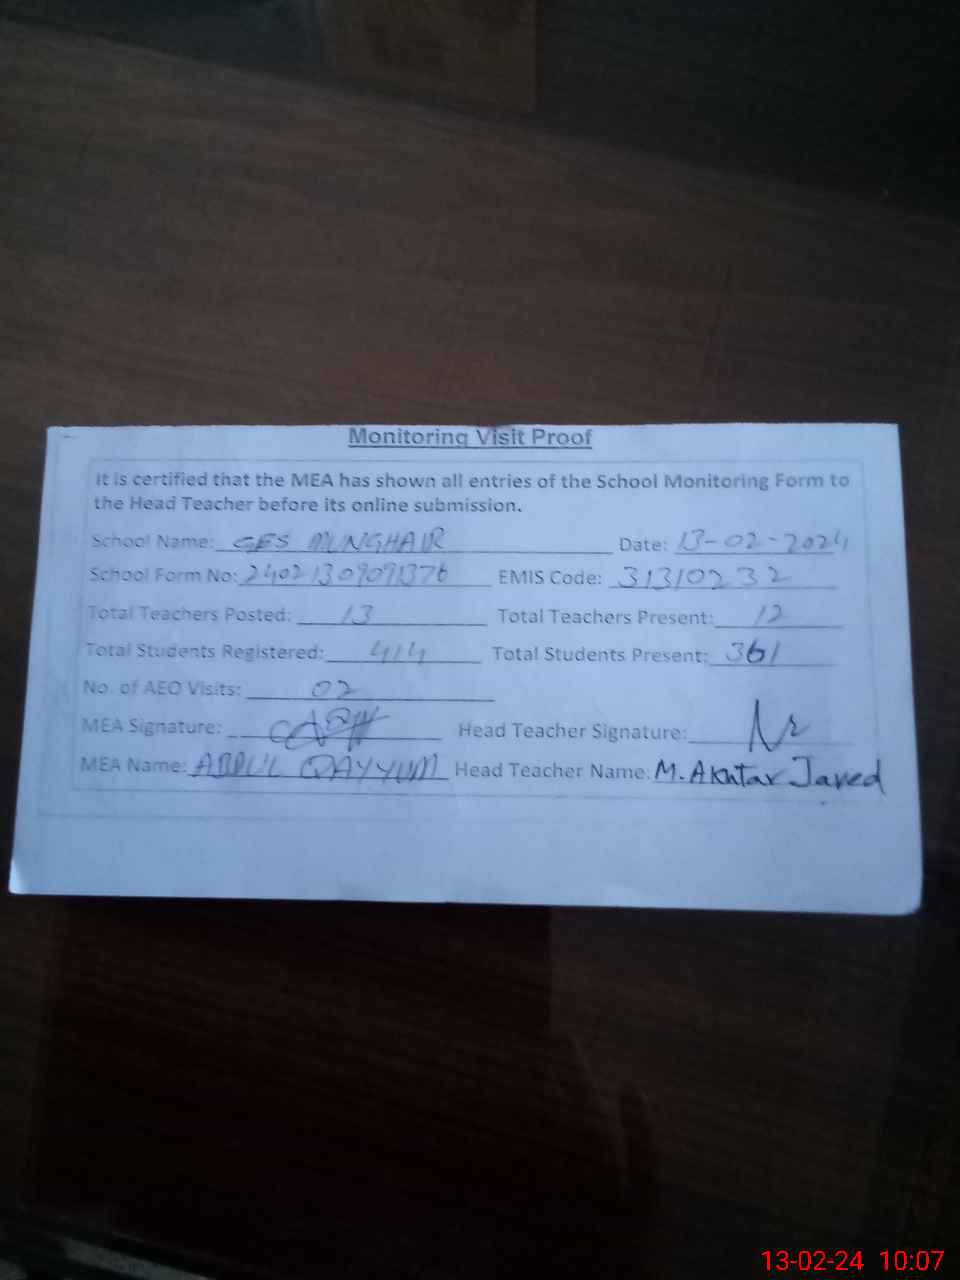 Monitoring Visit Proof
It is certified that the MEA has shown all entries of the School Monitoring Form to
the Head Teacher before its online submission.
School Name: GES MUNGHAIR Date: 13-02-2024
School Form No: 24021309091376 EMIS Code: 31310232
Total Teachers Posted: 13 Total Teachers Present: 12
Total Students Registered: 414 Total Students Present: 361
No. of AEO Visits: 02
MEA Signature: Head Teacher Signature:
MEA Name: ABDUL QAYYUM Head Teacher Name: M. Akhtar Javed
13-02-24 10:07